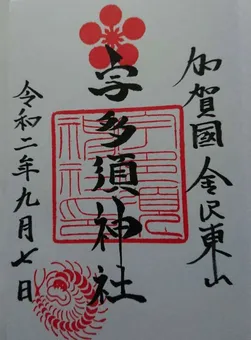 加賀國 金沢東山
宇多須神社
令和二年九月七日